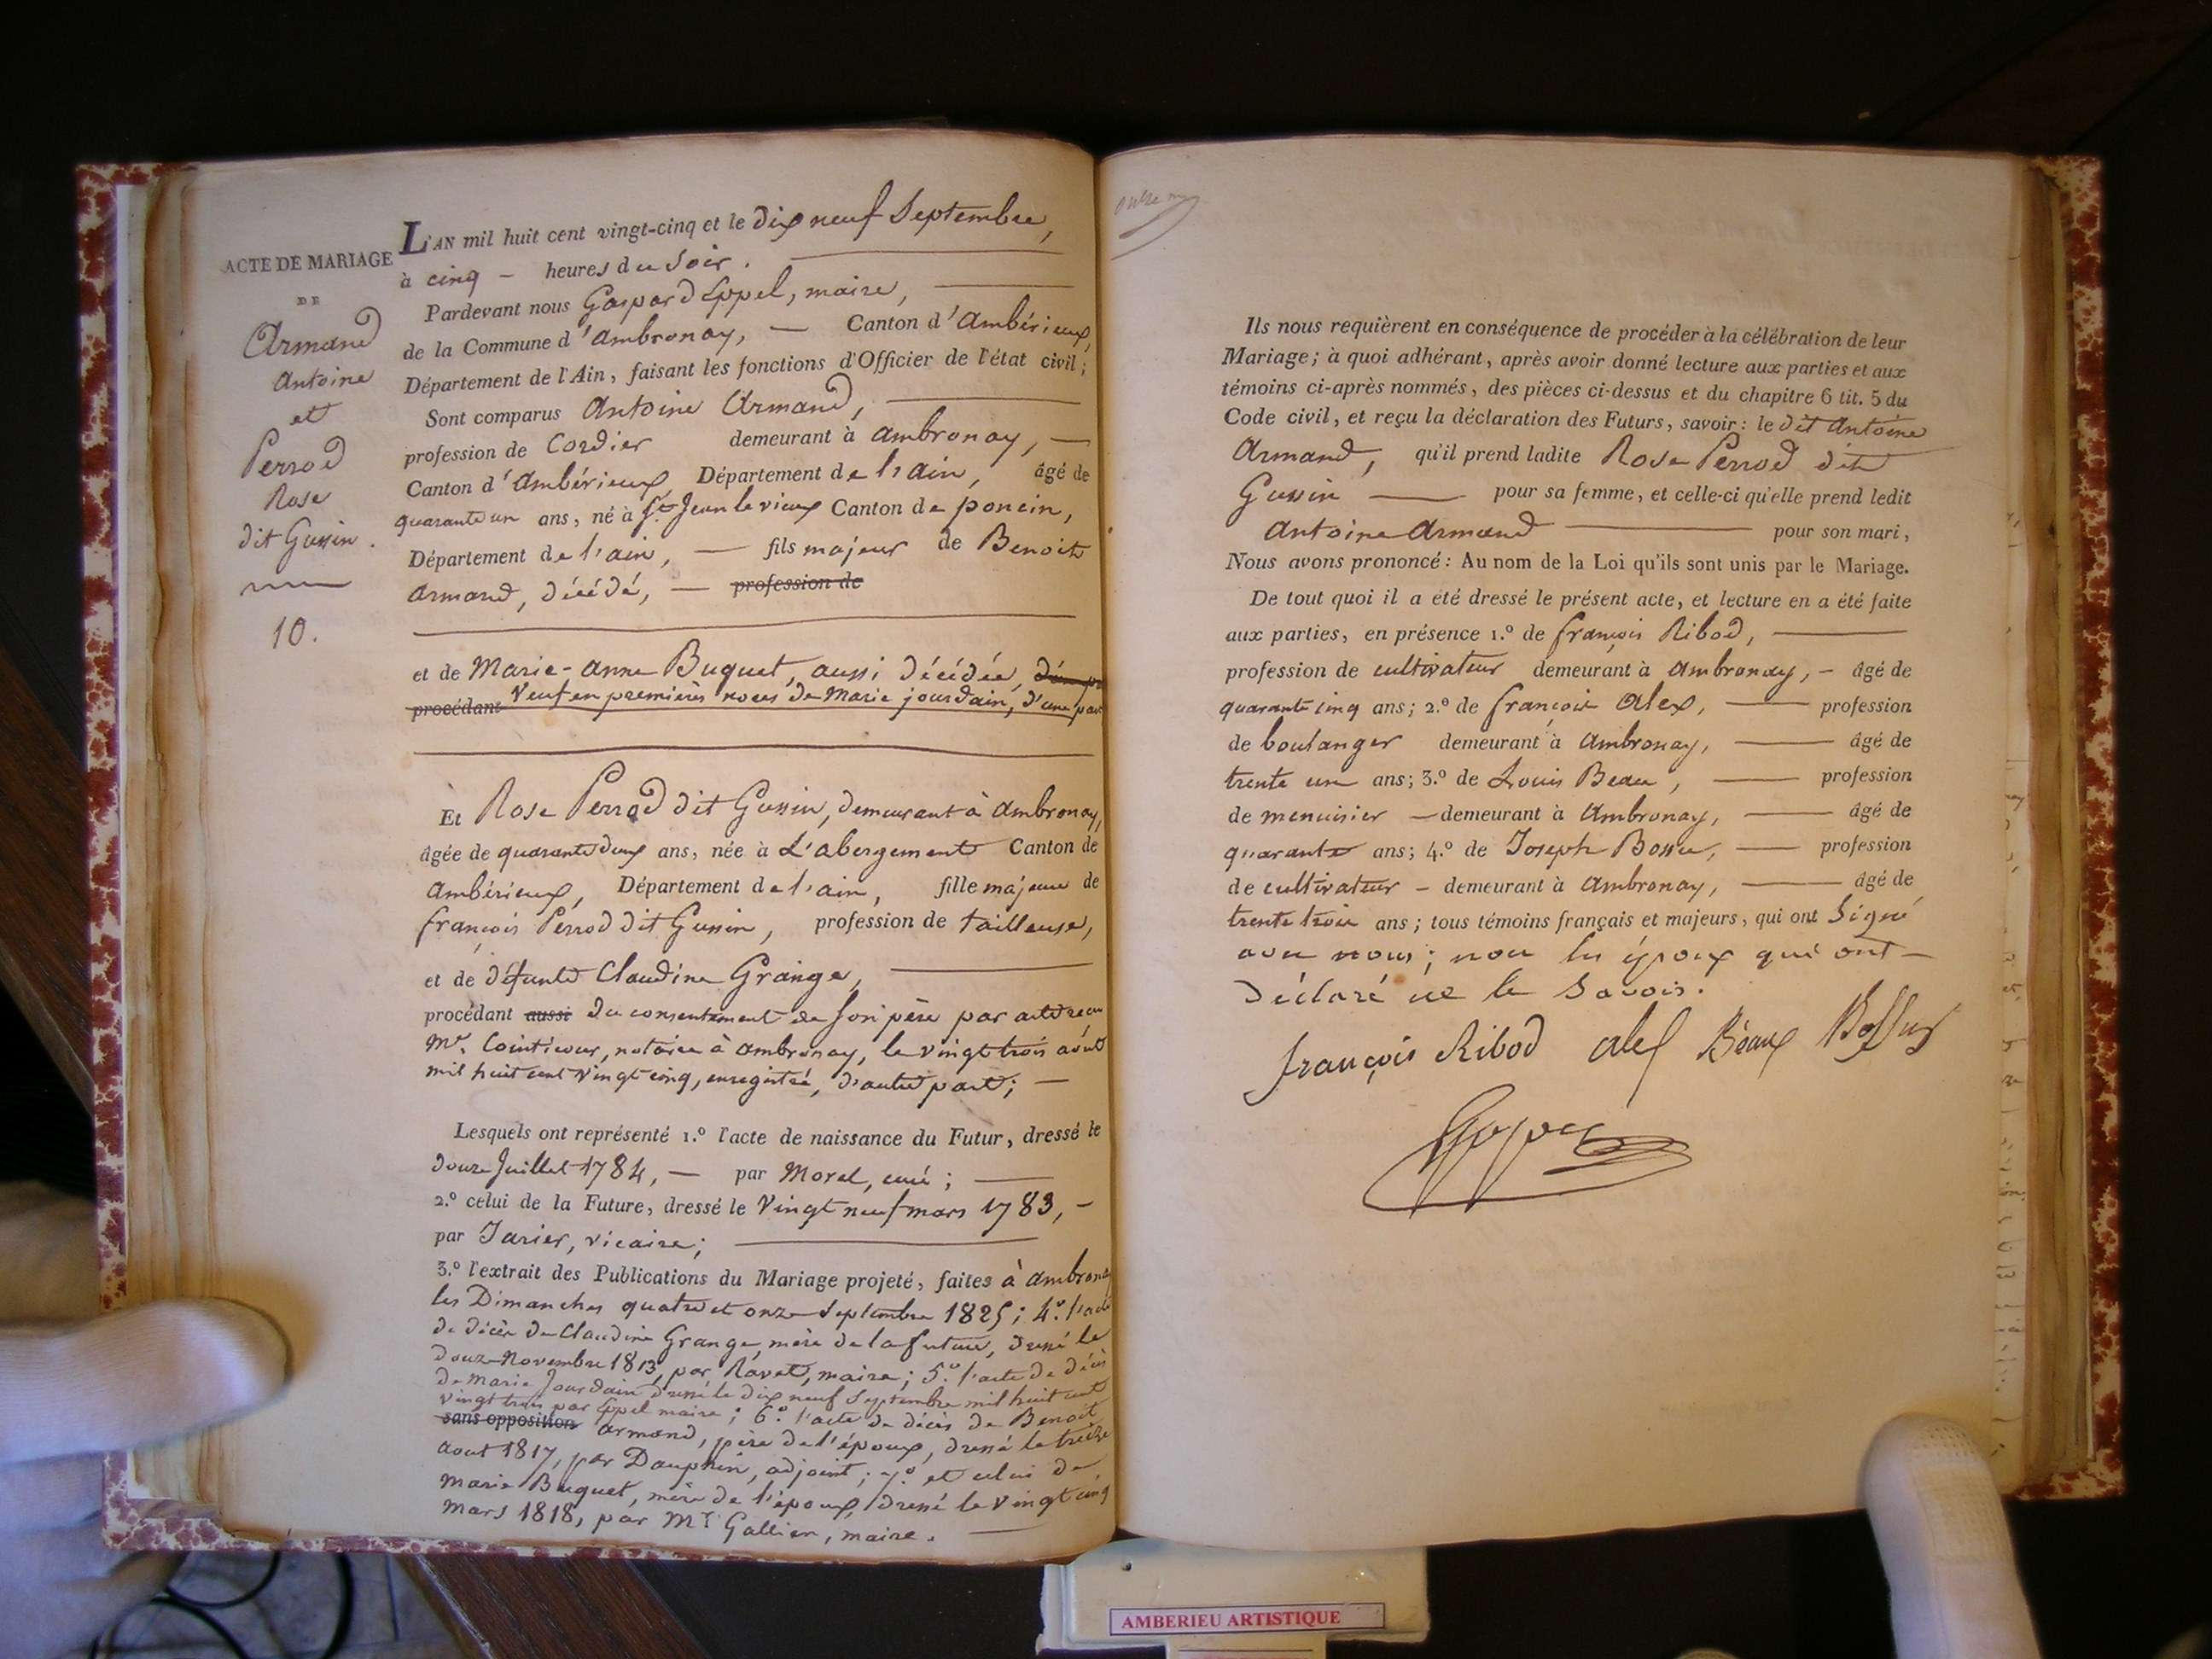 ACTE DE MARIAGE
DE
Armand
Antoine
et
Perrod
Rose
dit Gussin.
10.
L'AN mil huit cent vingt-cinq et le dix neuf Septembre,
à cinq — heures du Soir.
Pardevant nous Gaspard Eppel, maire,
de la Commune d'ambronay, — Canton d'Ambérieux,
Département de l'Ain, faisant les fonctions d'Officier de l'état civil;
Sont comparus Antoine Armand,
profession de Cordier demeurant à ambronay, —
Canton d'Ambérieux, Département de l'ain, âgé de
quarante un ans, né à St. Jean le vieux Canton de poncin,
Département de l'ain, — fils majeur de Benoit
armand, décédé, — profession de
et de Marie-anne Buquet, aussi décédée,
procédant Veuf en premières noces de Marie jourdain, d'une part
Et Rose Perrod dit Gussin, demeurant à Ambronay,
âgée de quarante deux ans, née à L'abergement Canton de
Ambérieux, Département de l'ain, fille majeure de
françois Perrod dit Gussin, profession de tailleuse,
et de défunte Claudine Grange,
procédant aussi du consentement de Son père par acte reçu
Mr. Cointicour, notaire à ambronay, le vingt trois août
mil huit cent vingt cinq, enregistré, d'autre part; —
Lesquels ont représenté 1.º l'acte de naissance du Futur, dressé le
douze Juillet 1784, — par Morel, curé;
2.º celui de la Future, dressé le Vingt neuf mars 1783, —
par Jarier, vicaire;
3.º l'extrait des Publications du Mariage projeté, faites à ambronay
les Dimanches quatre et onze Septembre 1825; 4.º l'acte
de décès de Claudine Grange, mère de la future, dressé le
douze Novembre 1813, par Ravet, maire; 5.º l'acte de décès
de marie Jourdain dressé le dix neuf Septembre mil huit cent
vingt trois par Eppel maire; 6.º l'acte de décès de Benoit
sans opposition armand, père de l'époux, dressé le treize
aout 1817, par Dauphin, adjoint; 7.º et celui de
marie Buquet, mère de l'époux, dressé le vingt cinq
mars 1818, par Mr. Gallien, maire. —
Ils nous requièrent en conséquence de procéder à la célébration de leur
Mariage; à quoi adhérant, après avoir donné lecture aux parties et aux
témoins ci-après nommés, des pièces ci-dessus et du chapitre 6 tit. 5 du
Code civil, et reçu la déclaration des Futurs, savoir: le dit Antoine
Armand, qu'il prend ladite Rose Perrod dit
Gussin — pour sa femme, et celle-ci qu'elle prend ledit
Antoine Armand — pour son mari,
Nous avons prononcé: Au nom de la Loi qu'ils sont unis par le Mariage.
De tout quoi il a été dressé le présent acte, et lecture en a été faite
aux parties, en présence 1.º de françois Ribod,
profession de cultivateur demeurant à Ambronay, — âgé de
quarante cinq ans; 2.º de françois Alex, — profession
de boulanger demeurant à Ambronay, — âgé de
trente un ans; 3.º de Louis Beau, — profession
de menuisier — demeurant à Ambronay, — âgé de
quarante ans; 4.º de Joseph Bossu, — profession
de cultivateur — demeurant à Ambronay, — âgé de
trente trois ans; tous témoins français et majeurs, qui ont Signé
avec nous; non les époux qui ont —
Déclaré ne le Savoir.
françois Ribod alex Béaux Bossus
AMBERIEU ARTISTIQUE